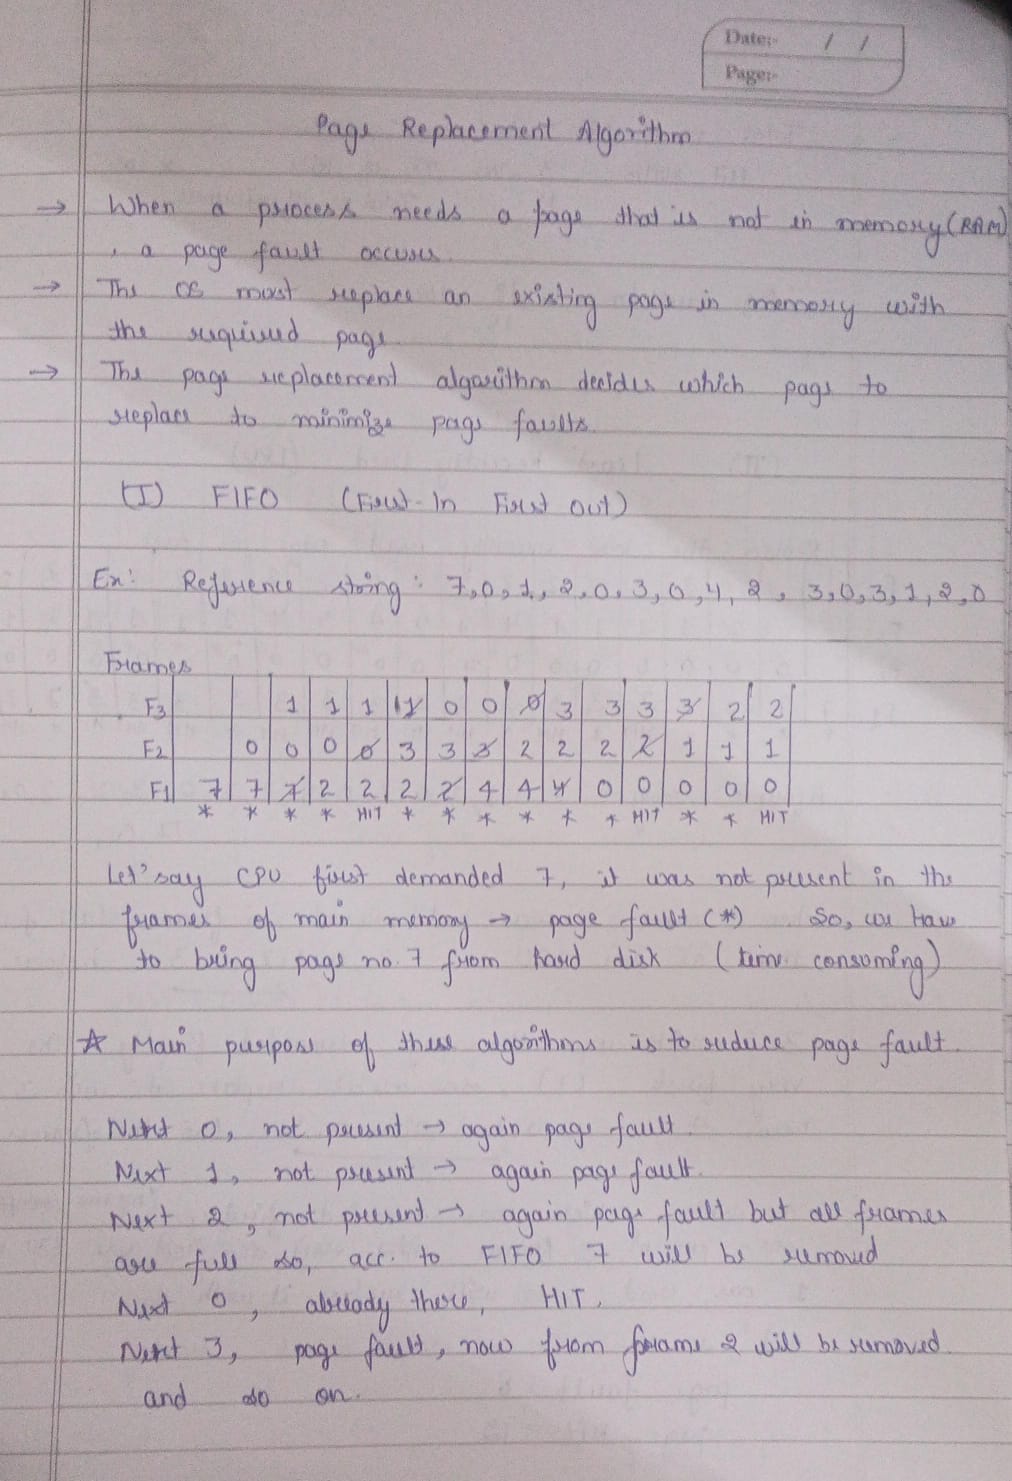 Date:- / /
Page:-
Page Replacement Algorithm
→ When a process needs a page that is not in memory (RAM)
, a page fault occurs.
→ The OS must replace an existing page in memory with
the required page.
→ The page replacement algorithm decides which page to
replace to minimize page faults.
(I) FIFO (First-In First Out)
Ex: Reference string: 7,0,1,2,0,3,0,4,2,3,0,3,1,2,0
Frames
F3 1 1 1 1 0 0 0 3 3 3 3 2 2
F2 0 0 0 0 3 3 3 2 2 2 2 1 1 1
F1 7 7 7 2 2 2 2 4 4 4 0 0 0 0 0
* * * * HIT * * * * * * HIT * * HIT
Let's say CPU first demanded 7, it was not present in the
frames of main memory → page fault (*) . So, we have
to bring page no. 7 from hard disk (time consuming)
☆ Main purpose of these algorithms is to reduce page fault.
Next 0, not present → again page fault.
Next 1, not present → again page fault.
Next 2, not present → again page fault but all frames
are full so, acc. to FIFO 7 will be removed
Next 0, already there, HIT.
Next 3, page fault, now from frame 2 will be removed.
and so on.